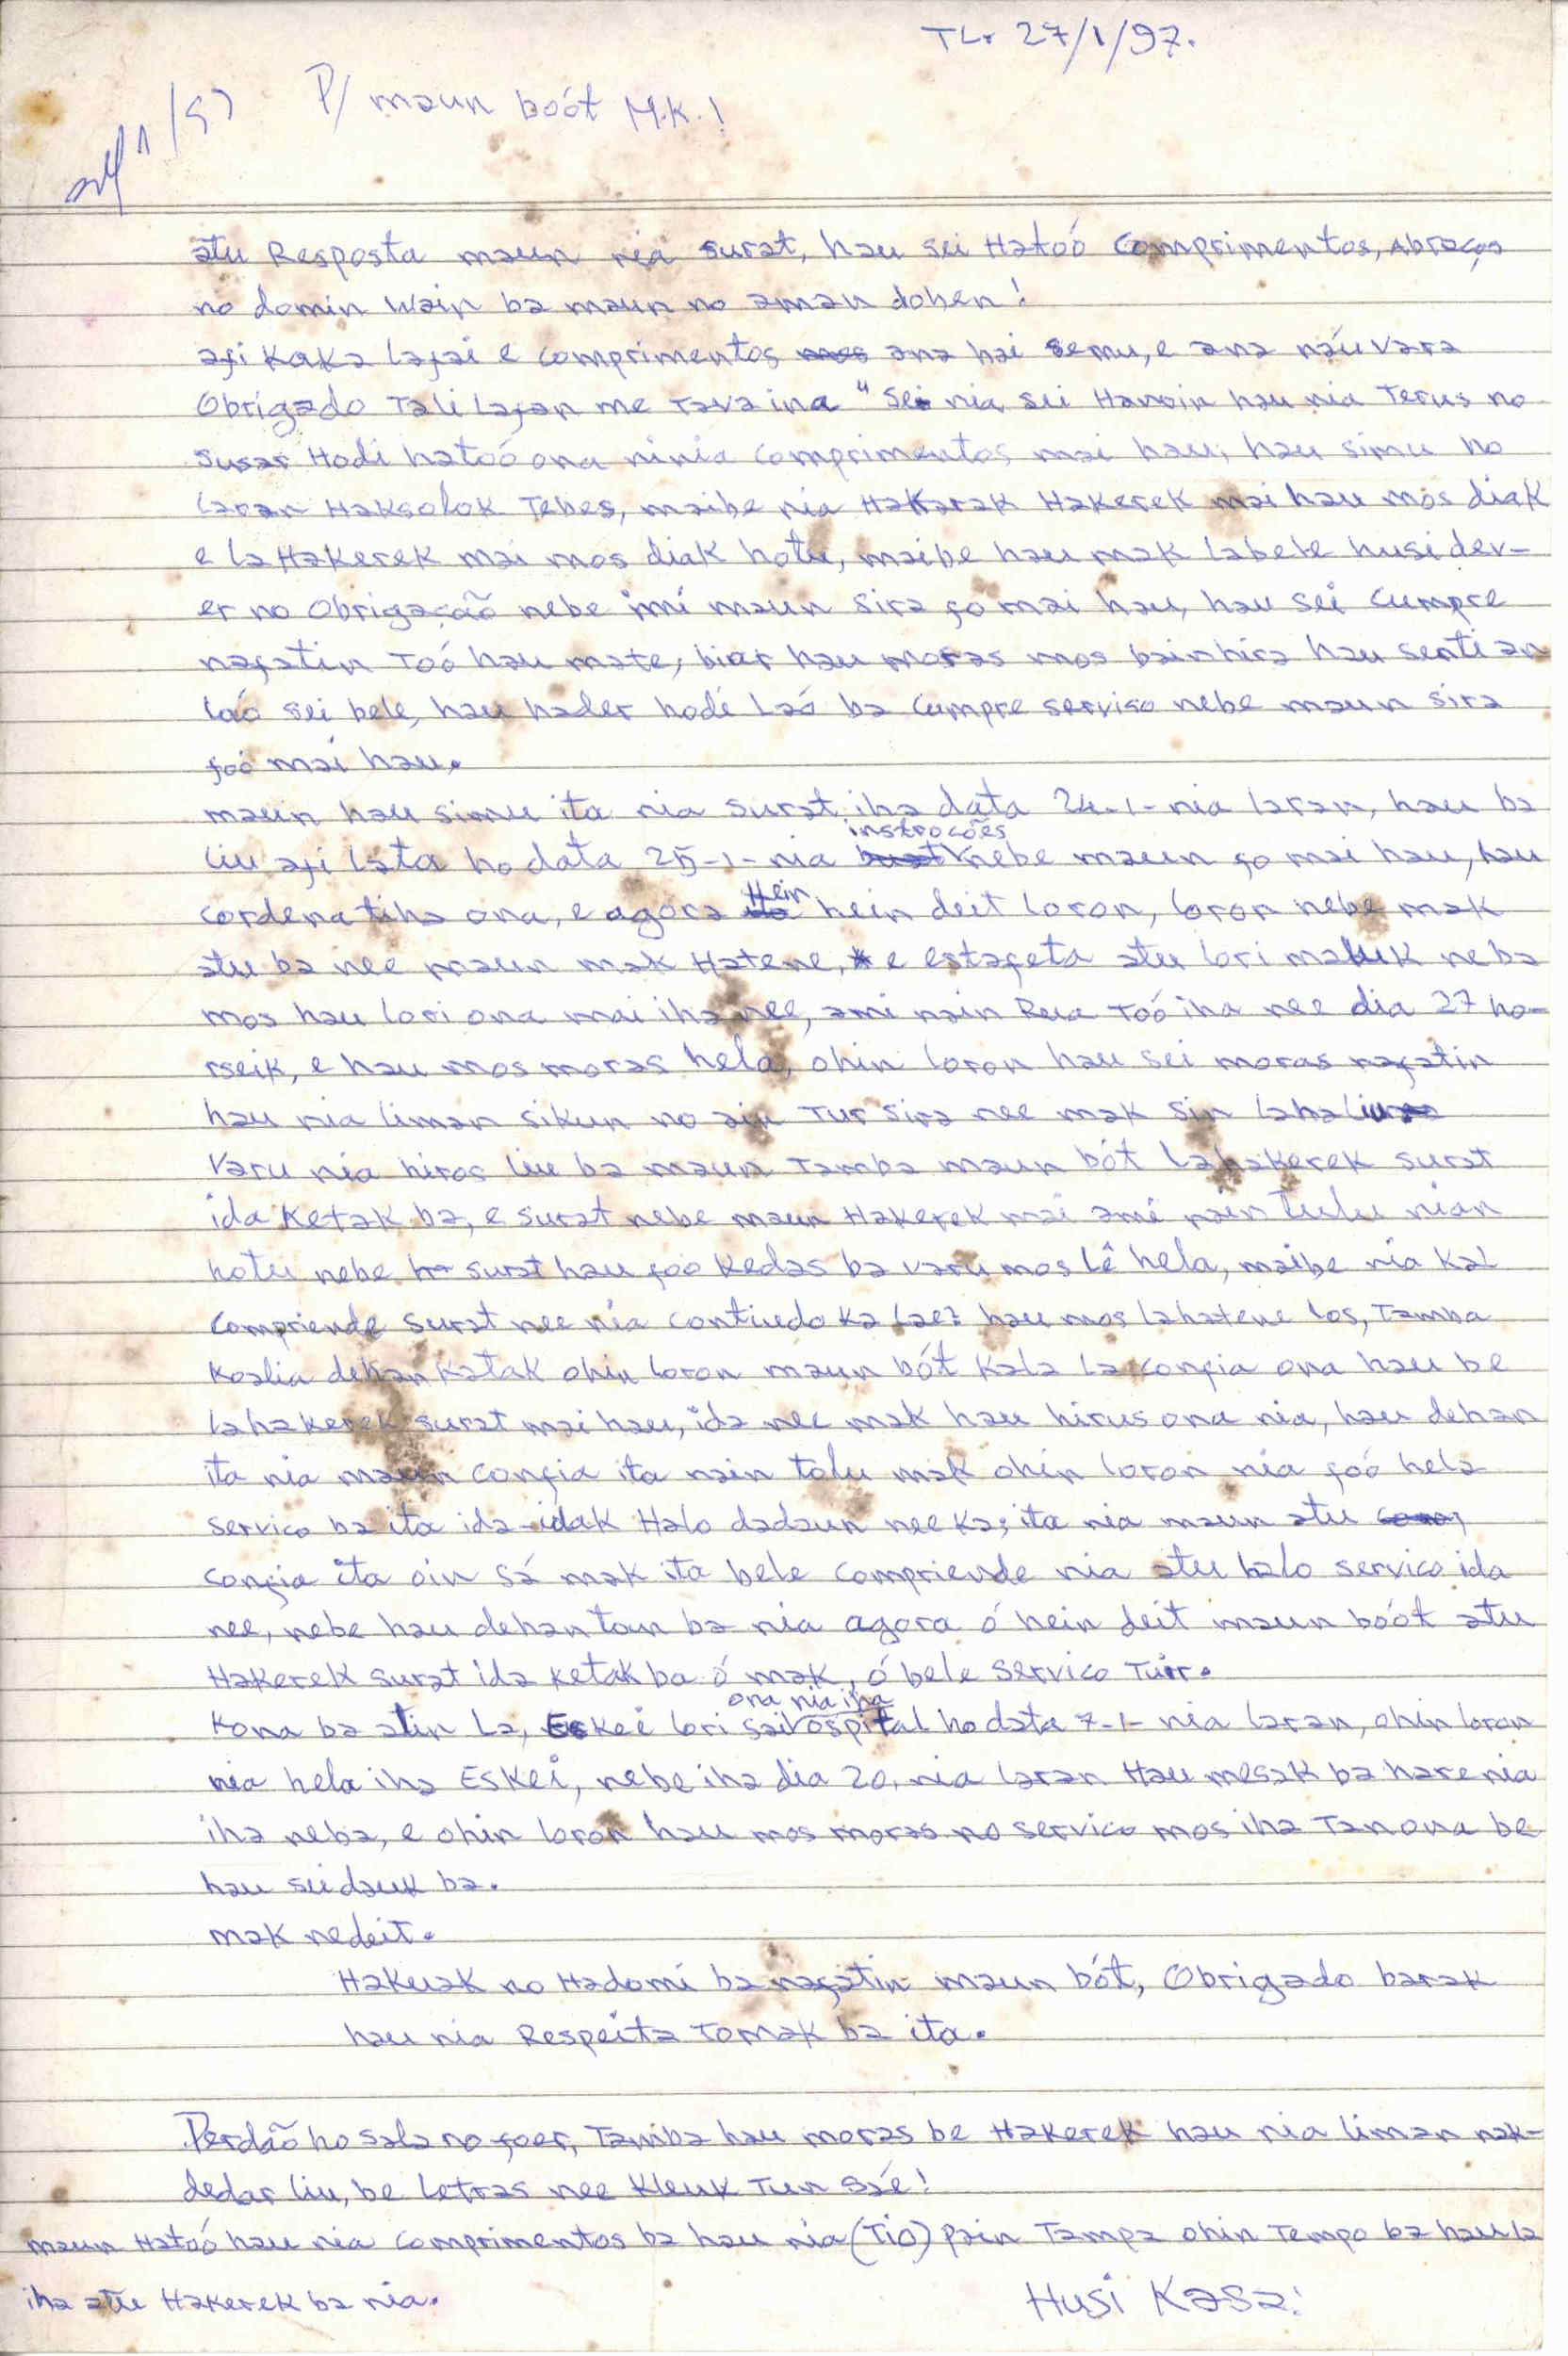 TLr 27/1/97.
P/ maun boót M.K.!
/97
atu Resposta maun nia surat, hau sei Hatoó Comprimentos, Abraços
no domin Wain ba maun no aman doben!
afi Kaka lafai e comprimentos ana hai semu, e ana náu vara
Obrigado Tali lafan me Tava ina " Sei nia sei Hanoin hau nia Terus no
susar Hodi hatoó ona ninia comprimentos mai hau, hau simu no
laran Haksolok Tebes, maibe nia Hakarak Hakerek mai hau mos diak
e la Hakerek mai mos diak hotu, maibe hau mak labele husi dev-
er no Obrigação nebe imi maun sira fo mai hau, hau sei cumpre
nafatin Toó hau mate, biar hau moras mos bainhira hau senti an
laó sei bele, hau hader hodi Laó ba cumpre serviso nebe maun sira
foó mai hau.
maun hau simu ita nia surat iha data 24-1- nia laran, hau ba
instroções
liu afi lata ho data 25-1- nia nebe maun fo mai hau, hau
Hein
cordena tiha ona, e agora hein deit loron, loron nebe mak
atu ba nee maun mak Hatene, e estafeta atu lori maluk neba
mos hau lori ona mai iha nee, ami nain Rua Toó iha nee dia 27 ho-
rseik, e hau mos moras hela, ohin loron hau sei moras nafatin
hau nia liman sikun no ain Tur sira nee mak sin laha liu
Varu nia hiros liu ba maun Tamba maun bót Lahakerek surat
ida Ketak ba, e surat nebe maun Hakerek mai ami nain tulu nian
hotu nebe surat hau foó Kedas ba varu mos lê hela, maibe nia Kal
compriende surat nee nia contiudo Ka lae? hau mos lahatene los, Tamba
Koalia dehan katak ohin loron maun bót Kala La confia ona hau be
lahakerek surat mai hau, ida nee mak hau hirus ona nia, hau dehan
ita nia maun confia ita nain tolu mak ohin loron nia foó hela
servico ba ita ida-idak Halo dadaun nee Ka, ita nia maun atu
confia ita oin sá mak ita bele compriende nia atu halo servico ida
nee, nebe hau dehan tan ba nia agora ó hein deit maun boót atu
Hakerek surat ida ketak ba ó mak, ó bele servico Tuir.
ona nia iha
Kona ba atin La, Eskei lori sai ospital ho data 7-1- nia laran, ohin loron
nia hela iha Eskei, nebe iha dia 20, nia laran Hau mesak ba hare nia
iha neba, e ohin loron hau mos moras no servico mos iha Tan ona be
hau seidauk ba.
mak nedeit.
Hakuak no Hadomi ba nafatin maun bót, Obrigado barak
hau nia Respeita Tomak ba ita.
Perdão ho sala no foer, Tamba hau moras be Hakerek hau nia liman nak-
dedar liu, be Letras nee Kleuk Tun Saé!
maun Hatoó hau nia comprimentos ba hau nia (Tio) Pain Tampa ohin Tempo ba hau la
iha atu Hakerek ba nia.
Husi Kasa!